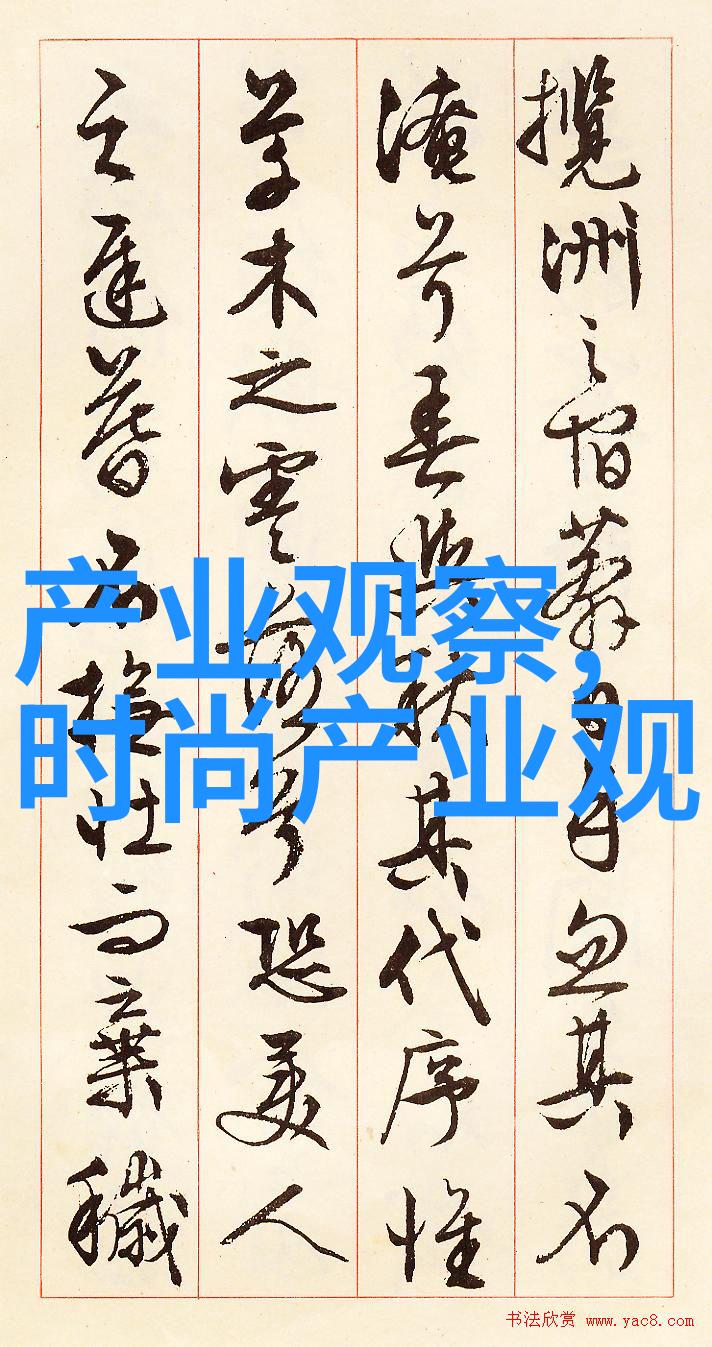 攬洲之宿莽日月忽其不
淹兮春與秋其代序惟
草木之零落兮恐美人
之遲暮不撫壯而棄穢
产业观察,
时尚产业观
书法欣赏 www.yac8.com